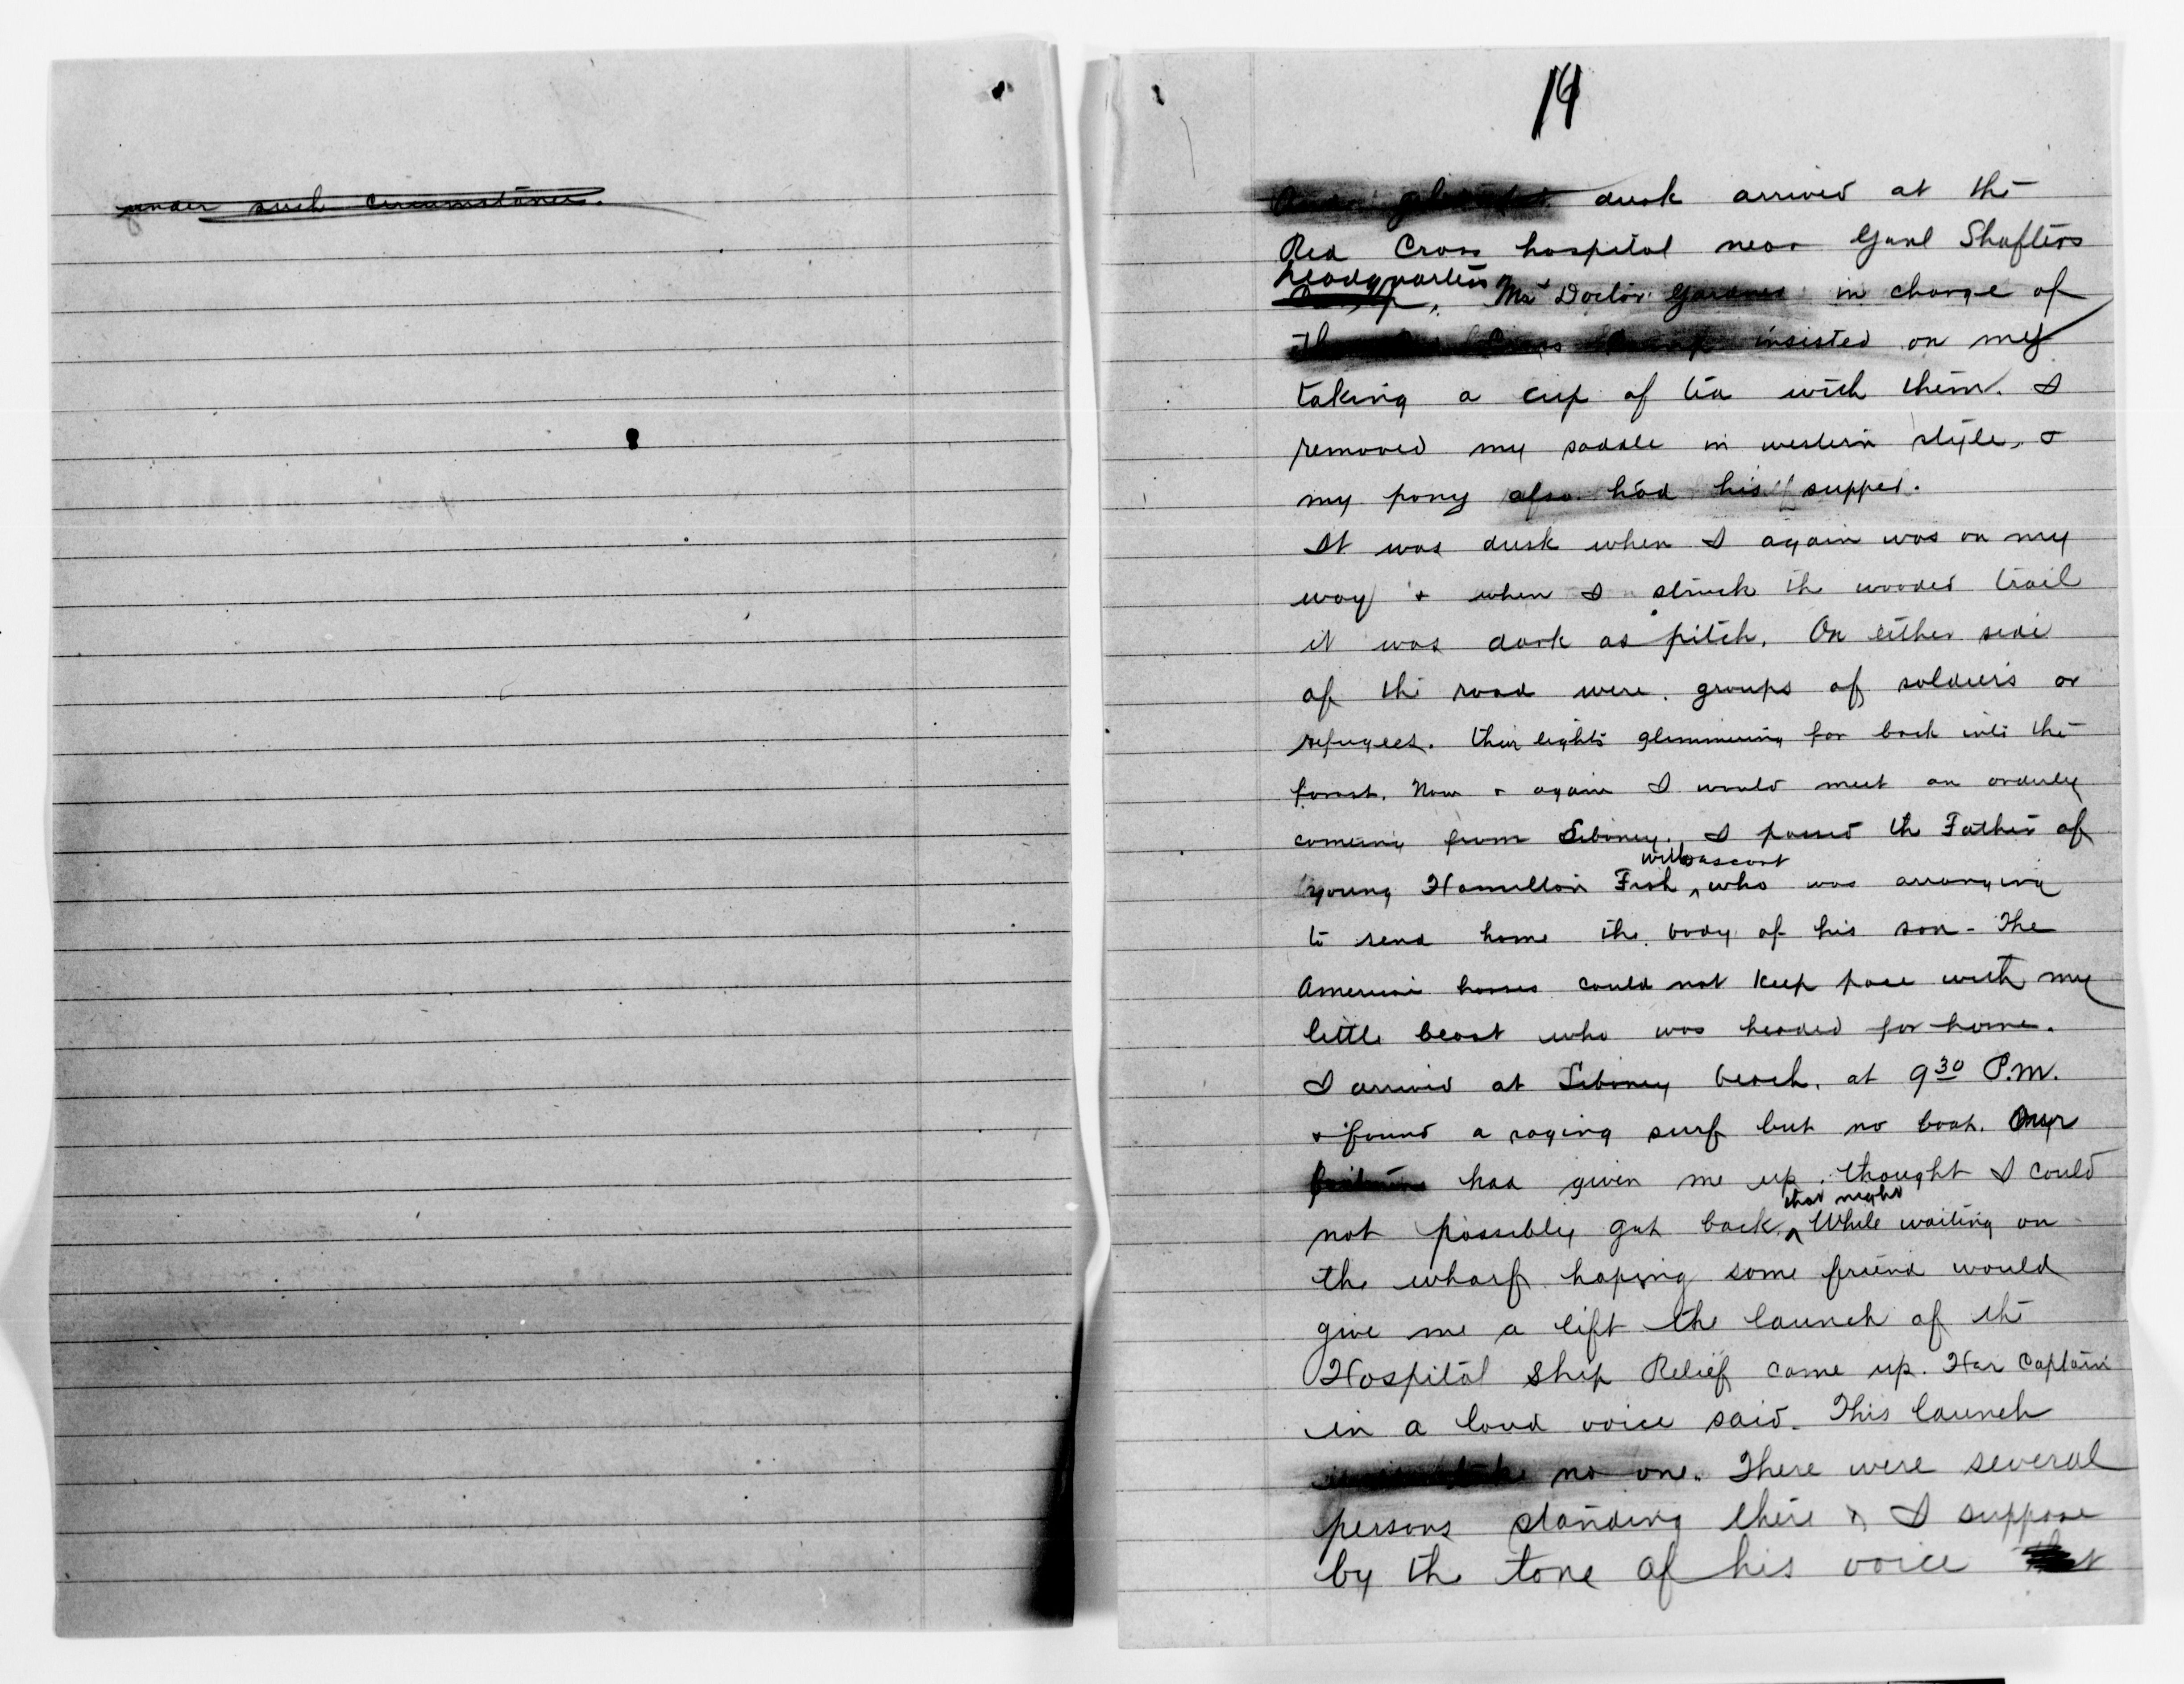 under such circumstances.
14
dusk arrived at the
Red Cross hospital near Genl Shafters
headquarters
Mrs Doctor Gardner in charge of
insisted on my
taking a cup of tea with them. I
removed my saddle in western style, &
my pony also had his supper.
It was dusk when I again was on my
way & when I struck the wooded trail
it was dark as pitch. On either side
of the road were groups of soldiers or
refugees. their lights glimmering far back into the
forest. Now & again I would meet an orderly
coming from Siboney. I passed the Father of
with escort
young Hamilton Fish ^ who was arranging
to send home the body of his son - The
American horses could not keep pace with my
little beast who was headed for home.
I arrived at Siboney beach. at 9 30 P.M.
& found a raging surf but no boat.
had given me up. thought I could
that night
not possibly get back. ^ While waiting on
the wharf hoping some friend would
give me a lift the launch of the
Hospital Ship Relief came up. Her Captain
in a loud voice said. This launch
no one. There were several
persons standing there & I suppose
by the tone of his voice